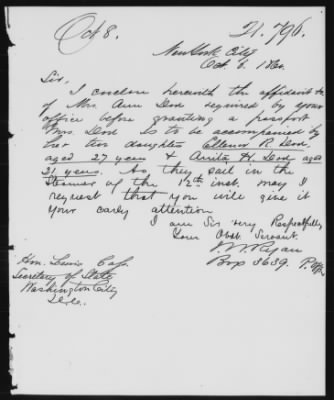 Oct 8. 21.796.
New York City
Oct. 6. 1860.
Sir,
I enclose herewith the affidavit &c
of Mrs. Ann Dod required by your
office before granting a passport
Mrs. Dod is to be accompanied by
her two daughters Ellenor R. Dod.
aged 27 years & Anita H. Dod aged
21 years. As they sail in the
Steamer of the 12th inst. may I
request that you will give it
your early attention
I am Sir very Respectfully
Your Obdt Servant.
Ryan
Box 3639. P. Office
Hon. Lewis Cass.
Secretary of State
Washington City
D.C.